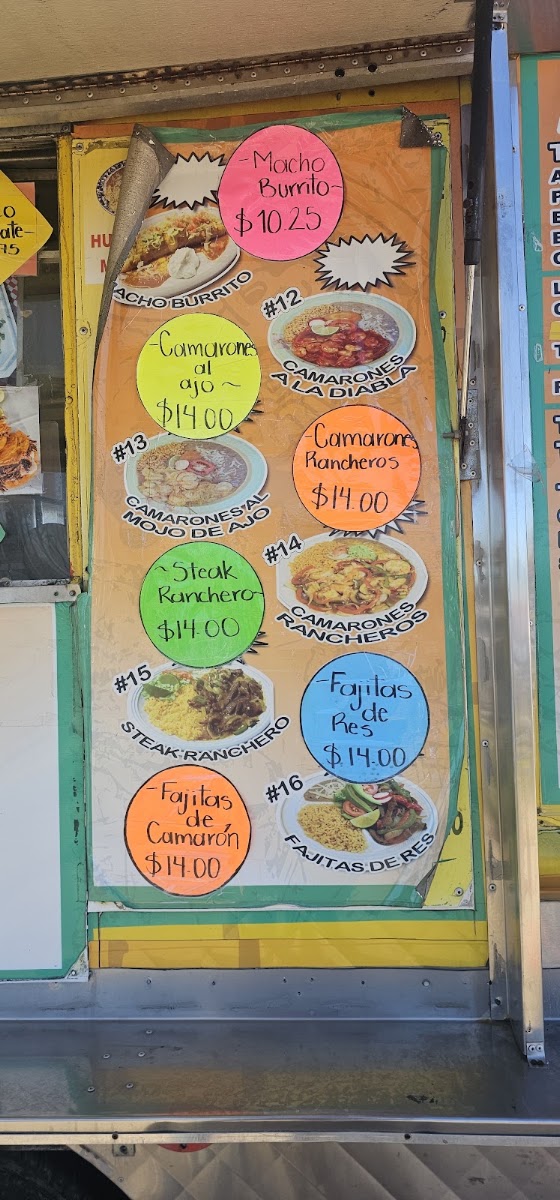 -Macho
Burrito-
$10.25
ACHO BURRITO
#12
CAMARONES
A LA DIABLA
-Camarones
al
ajo ~
$14.00
#13
CAMARONES AL
MOJO DE AJO
-Camarones
Rancheros
$14.00
#14
CAMARONES
RANCHEROS
~Steak
Ranchero-
$14.00
#15
STEAK RANCHERO
-Fajitas
de
Res
$14.00
#16
FAJITAS DE RES
-Fajitas
de
Camarón
$14.00
HU